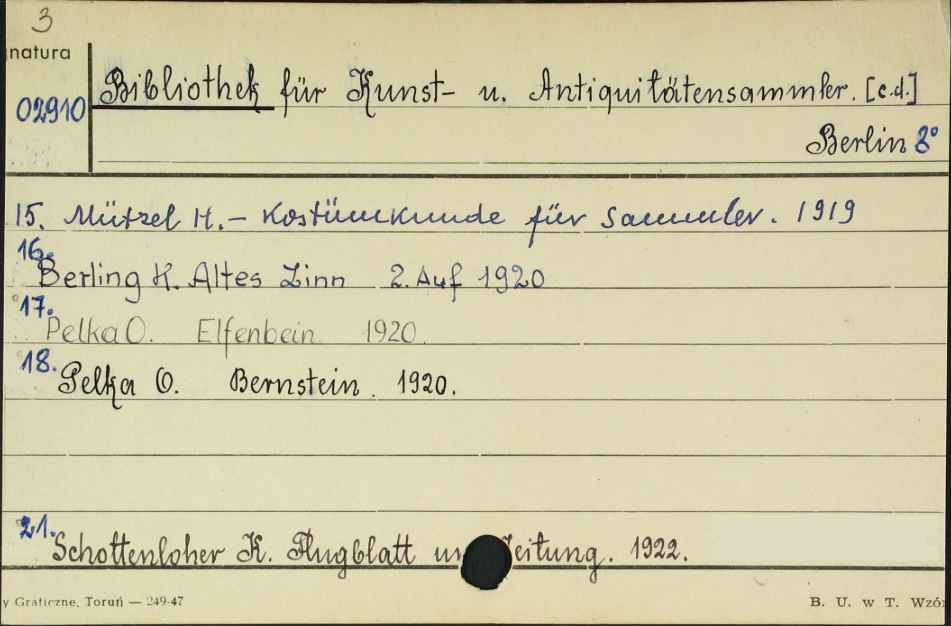 3
natura
02910
Bibliothek für Kunst- u. Antiquitätensammler. [c.d.]
Berlin 8°
15. Mützel H. – Kostümkunde für Sammler. 1919
16. Berling K. Altes Zinn 2. Auf 1920
17. Pelka O. Elfenbein 1920.
18. Pelka O. Bernstein. 1920.
21. Schottenloher K. Flugblatt un Zeitung. 1922.
y Graficzne, Toruń — 249-47
B. U. w T. Wzó